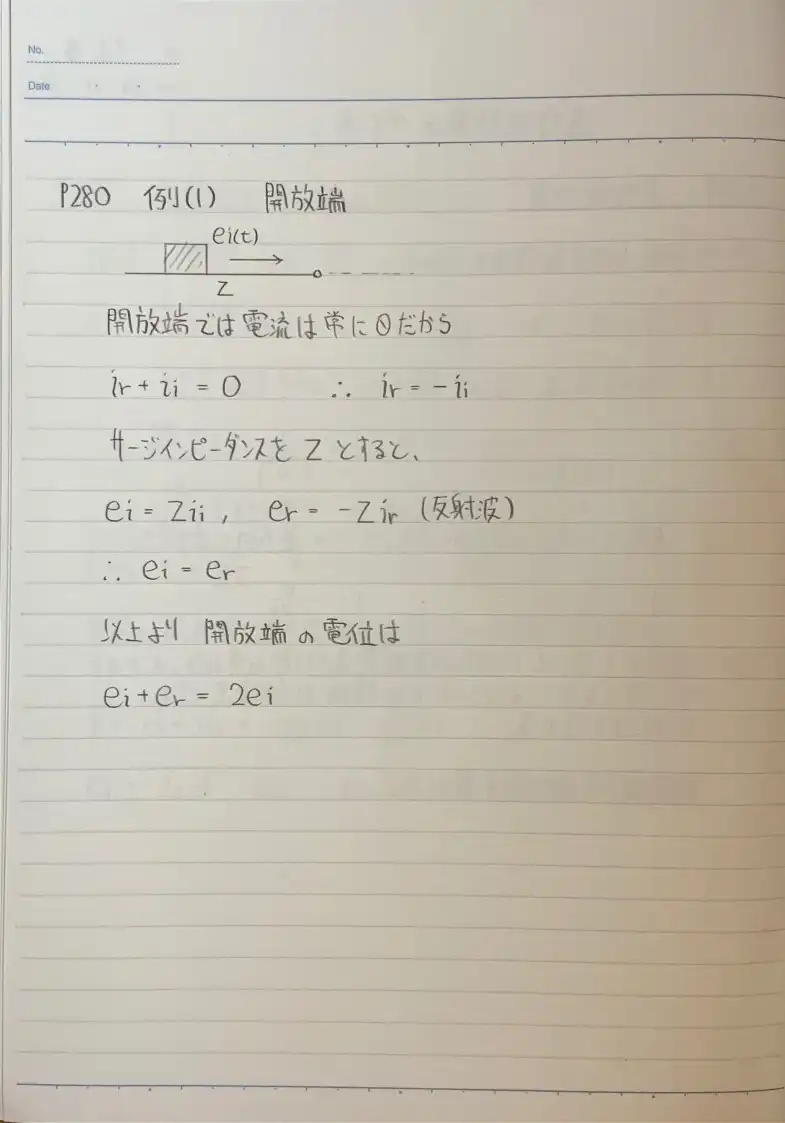 No.
Date
P280 例(1) 開放端
ei(t)
Z
開放端では電流は常に0だから
ir + ii = 0 ∴ ir = - ii
サージインピーダンスを Z とすると、
ei = Zii , er = -Zir (反射波)
∴ ei = er
以上より 開放端の電位は
ei + er = 2ei